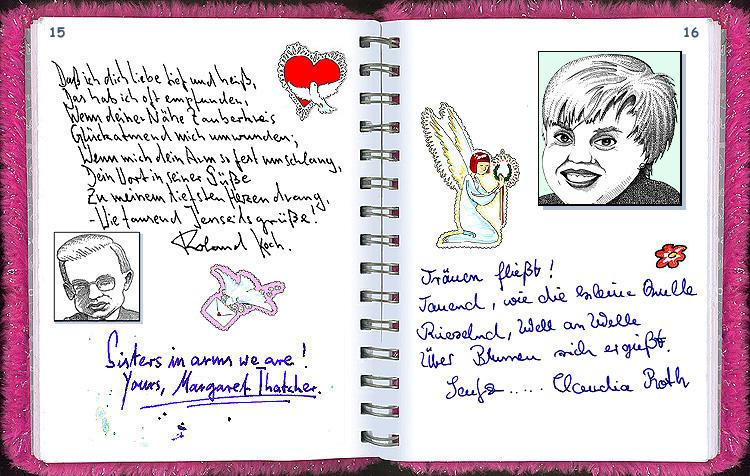 15
Daß ich dich liebe tief und heiß,
Das hab ich oft empfunden,
Wenn deiner Nähe Zauberkreis
Glückatmend mich umwunden;
Wenn mich dein Arm so fest umschlang,
Dein Wort in seiner Süße
Zu meinem tiefsten Herzen drang,
- Wie tausend Jenseitsgrüße!
Roland Koch.
Sisters in arms we are!
Yours, Margaret Thatcher.
16
Tränen fließt!
Tauend, wie die kleine Quelle
Rieselnd, Well an Welle
Über Blumen sich ergießt.
Seufz..... Claudia Roth